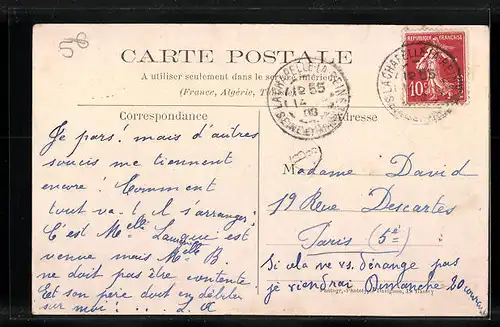 58
CARTE POSTALE
A utiliser seulement dans le service intérieur
(France, Algérie,
Correspondance
Adresse
RÉPUBLIQUE FRANÇAISE
10
LA CHAPELLE-LA-REINE
SEINE-ET-MARNE
Je pars! mais d'autres
soucis me tiennent
encore! Comment
tout va-t-il s'arranger?
C'est Melle est
venue mais Melle B.
ne doit pas être contente
Et son père doit en débiter
sur moi!
Madame David
19 Rue Descartes
Paris (5e)
Si cela ne vs. dérange pas
je viendrai Dimanche 20 courant